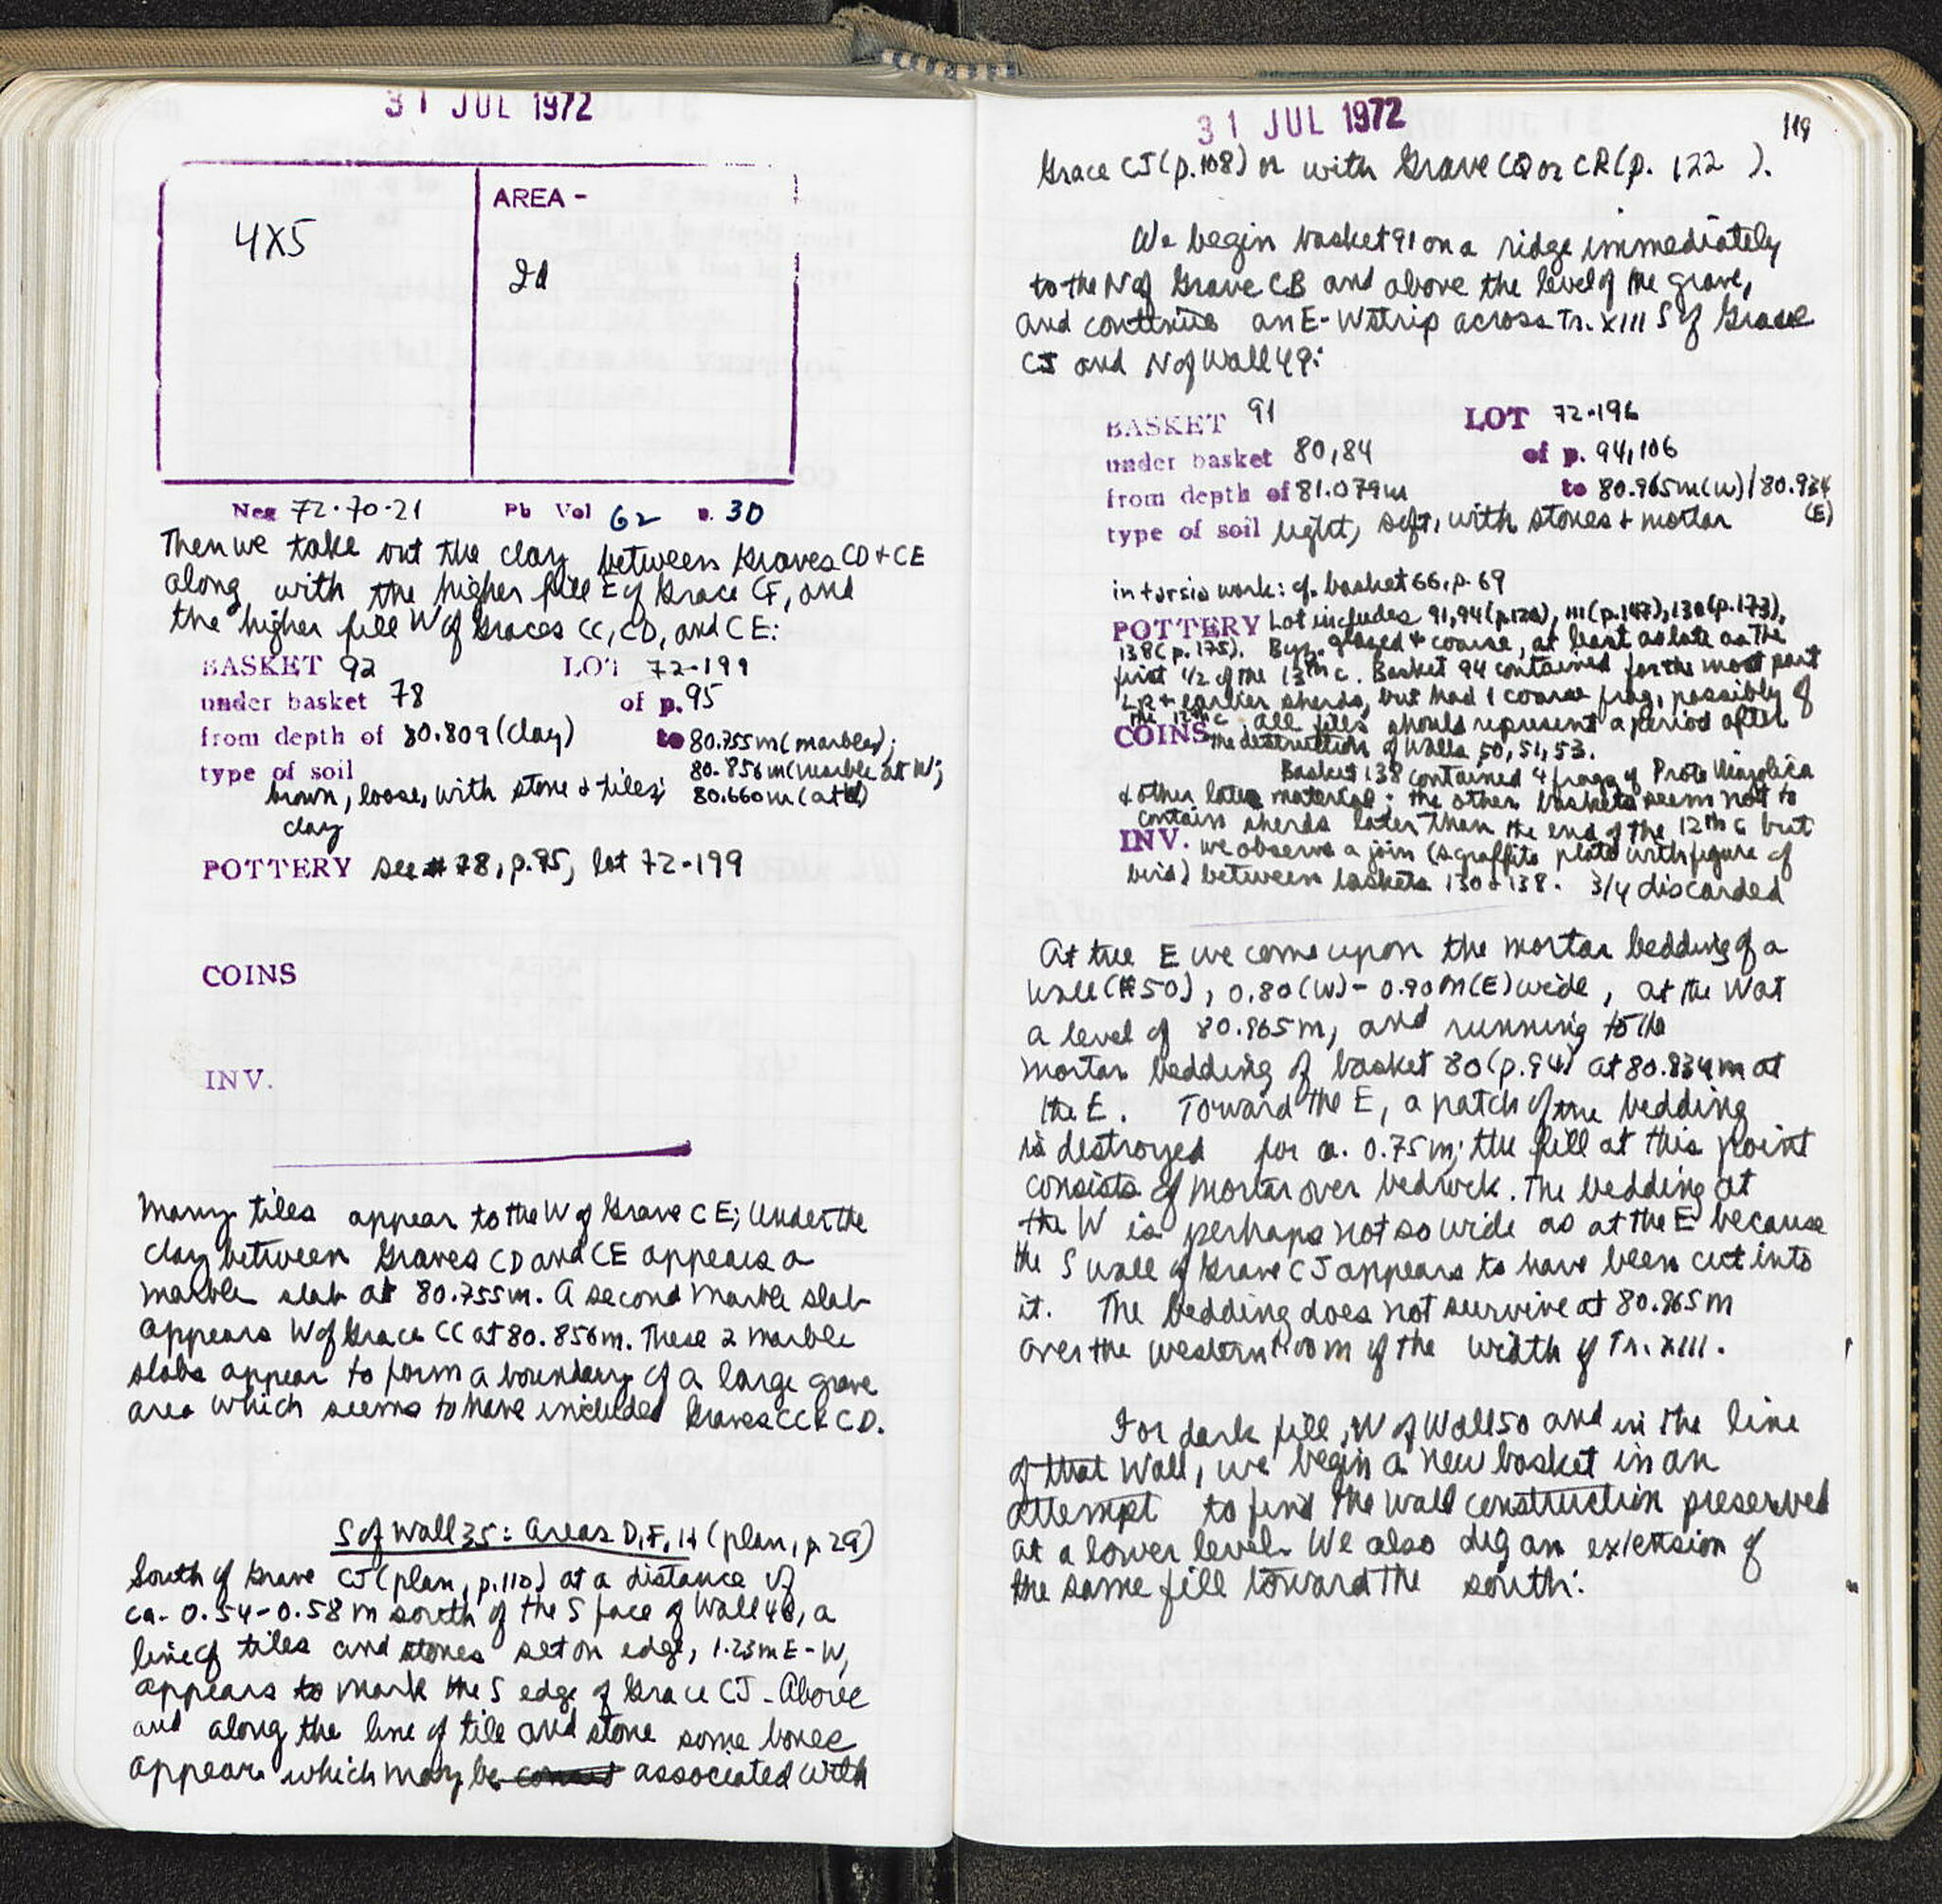 31 JUL 1972
4X5
AREA -
2d
Neg 72·70-21 Pb Vol 62 p. 30
Then we take out the clay between Graves CD + CE
along with the higher fill E of Grave CF, and
the higher fill W of Graves CC, CD, and CE:
BASKET 92 LOT 72-199
under basket 78 of p. 95
from depth of 80.809 (clay) to 80.755m (marble);
80.856m (marble at W;
type of soil
brown, loose, with stone & tiles; 80.660m (at
clay
POTTERY see # 78, p. 95, lot 72-199
COINS
INV.
Many tiles appear to the W of Grave CE; Under the
clay between Graves CD and CE appears a
marble slab at 80.755m. A second marble slab
appears W of Grave CC at 80.856m. These 2 marble
slabs appear to form a boundary of a large grave
area which seems to have included Graves CC & CD.
S of Wall 35: Areas D, F, H (plan, p. 29)
South of Grave CJ (plan, p. 110) at a distance of
ca. 0.54-0.58 m south of the S face of Wall 48, a
line of tiles and stones set on edge, 1.23m E-W,
appears to mark the S edge of Grave CJ. Above
and along the line of tile and stone some bones
appear which may be associated with
31 JUL 1972
119
Grave CJ (p. 108) or with Grave CQ or CR (p. 122 ).
We begin basket 91 on a ridge immediately
to the N of Grave CB and above the level of the grave,
and continue an E-W strip across Tr. XIII S of Grave
CJ and N of Wall 49:
BASKET 91 LOT 72-196
under basket 80, 84 of p. 94, 106
from depth of 81.079m to 80.965m (W) / 80.934
(E)
type of soil light, soft, with stones + mortar
intarsia work: cf. basket 66, p. 69
POTTERY Lot includes 91, 94 (p. 120), 111 (p. 147), 130 (p. 173),
138 (p. 175). Byz. glazed + coarse, at least as late as the
first 1/2 of the 13th c. Basket 94 contained for the most part
LR + earlier sherds, but had 1 coarse frag, possibly of
the 12th c. All fills should represent a period after
COINS the destruction of Walls 50, 51, 53.
Basket 138 contained 4 frags of Proto Majolica
& other later material; the other baskets seem not to
contain sherds later than the end of the 12th c but
INV. we observe a join (sgraffito plate with figure of
bird) between baskets 130 & 138. 3/4 discarded
At the E we come upon the mortar bedding of a
wall (#50), 0.80 (W) - 0.90m (E) wide, at the W at
a level of 80.965m, and running to the
mortar bedding of basket 80 (p. 94) at 80.834m at
the E. Toward the E, a patch of the bedding
is destroyed for a. 0.75m; the fill at this point
consists of mortar over bedrock. The bedding at
the W is perhaps not so wide as at the E because
the S wall of Grave CJ appears to have been cut into
it. The bedding does not survive at 80.965m
over the western m of the width of Tr. XIII.
For dark fill, W of Wall 50 and in the line
of that Wall, we begin a new basket in an
attempt to find the wall construction preserved
at a lower level. We also dig an extension of
the same fill toward the south: